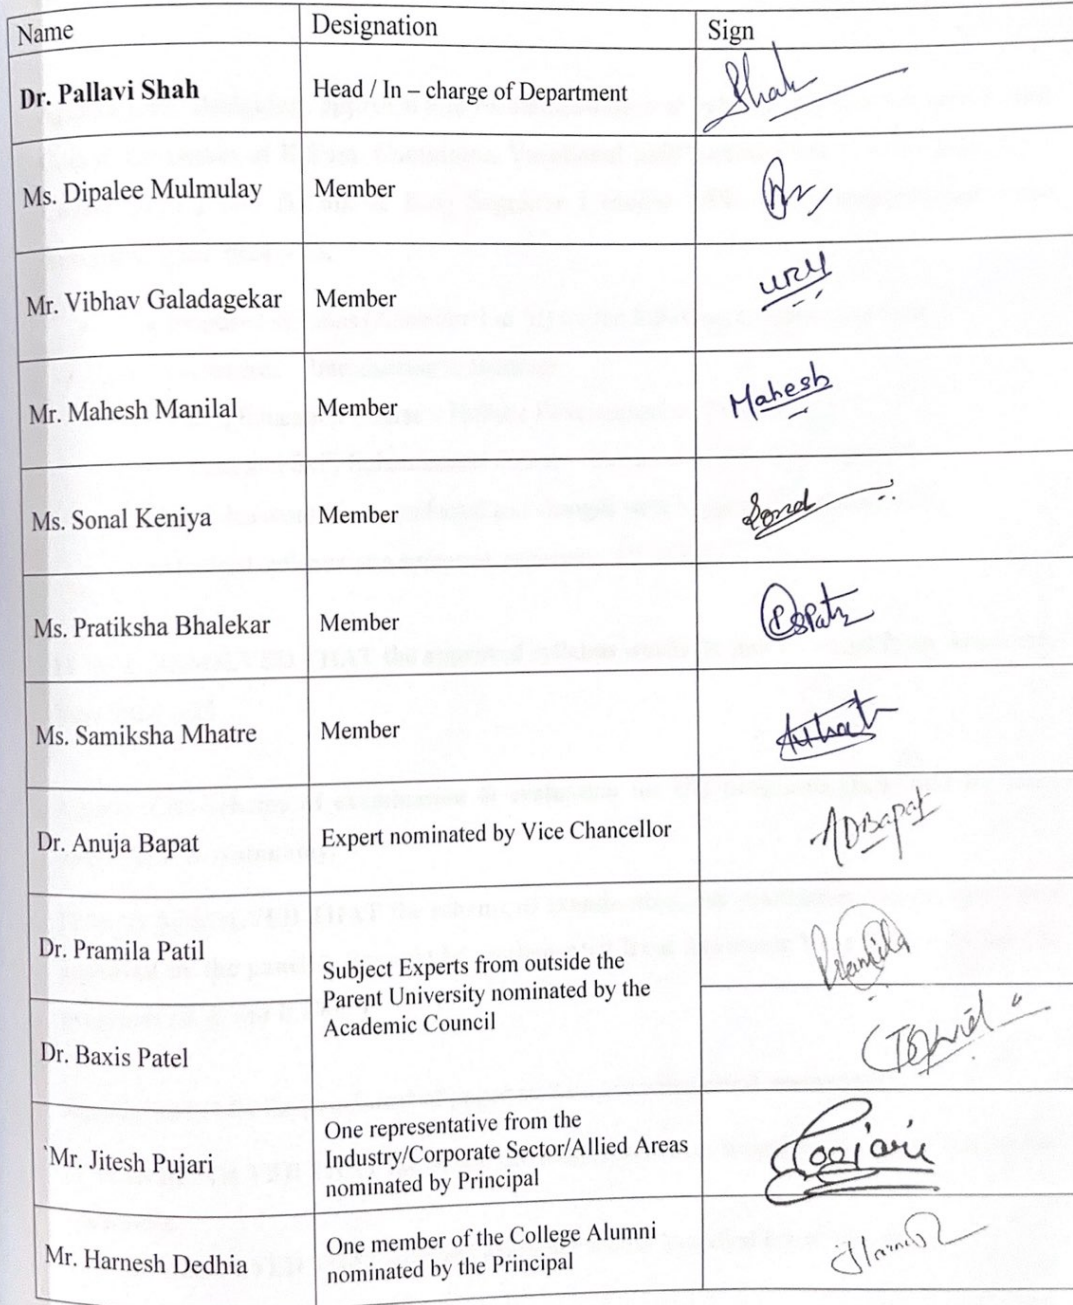 Name Designation Sign
Dr. Pallavi Shah Head / In – charge of Department Shah
Ms. Dipalee Mulmulay Member
Mr. Vibhav Galadagekar Member
Mr. Mahesh Manilal Member Mahesh
Ms. Sonal Keniya Member Sonal
Ms. Pratiksha Bhalekar Member
Ms. Samiksha Mhatre Member
Dr. Anuja Bapat Expert nominated by Vice Chancellor ADBapat
Dr. Pramila Patil Pramila
Subject Experts from outside the
Parent University nominated by the
Academic Council
Dr. Baxis Patel
Mr. Jitesh Pujari
One representative from the
Industry/Corporate Sector/Allied Areas
nominated by Principal
Poojari
Mr. Harnesh Dedhia
One member of the College Alumni
nominated by the Principal